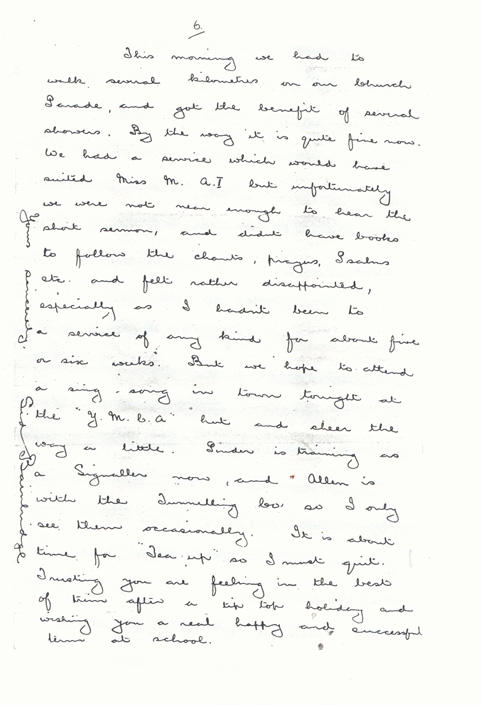 6.
This morning we had to
walk several kilometres on our Church
Parade, and got the benefit of several
showers. By the way it is quite fine now.
We had a service which would have
suited Miss M. A.I but unfortunately
we were not near enough to hear the
short sermon, and didn't have books
to follow the chants, prayers, Psalms
etc. and felt rather disappointed,
especially as I hadn't been to
a service of any kind for about five
or six weeks. But we hope to attend
a sing song in town tonight at
the "Y.M.C.A" hut and sheer the
way a little. Pinder is training as
a Signaller now, and Allen is
with the Tunnelling Co. so I only
see them occasionally. It is about
time for "Tea up" so I must quit.
Trusting you are feeling in the best
of trim after a tip top holiday and
wishing you a real happy and successful
term at school.
Yours sincerely,
Sid Bainbridge